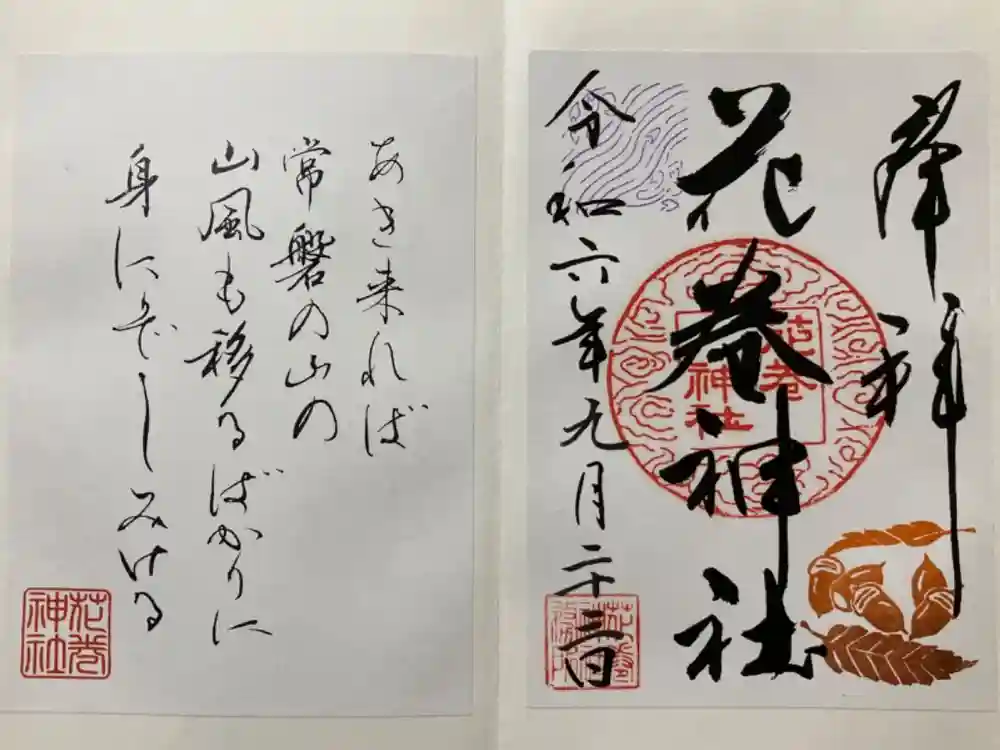 奉拝
花巻神社
花巻神社
令和六年九月二十三日
あき来れば
常磐の山の
山風も移るばかりに
身にぞしみける
花巻神社